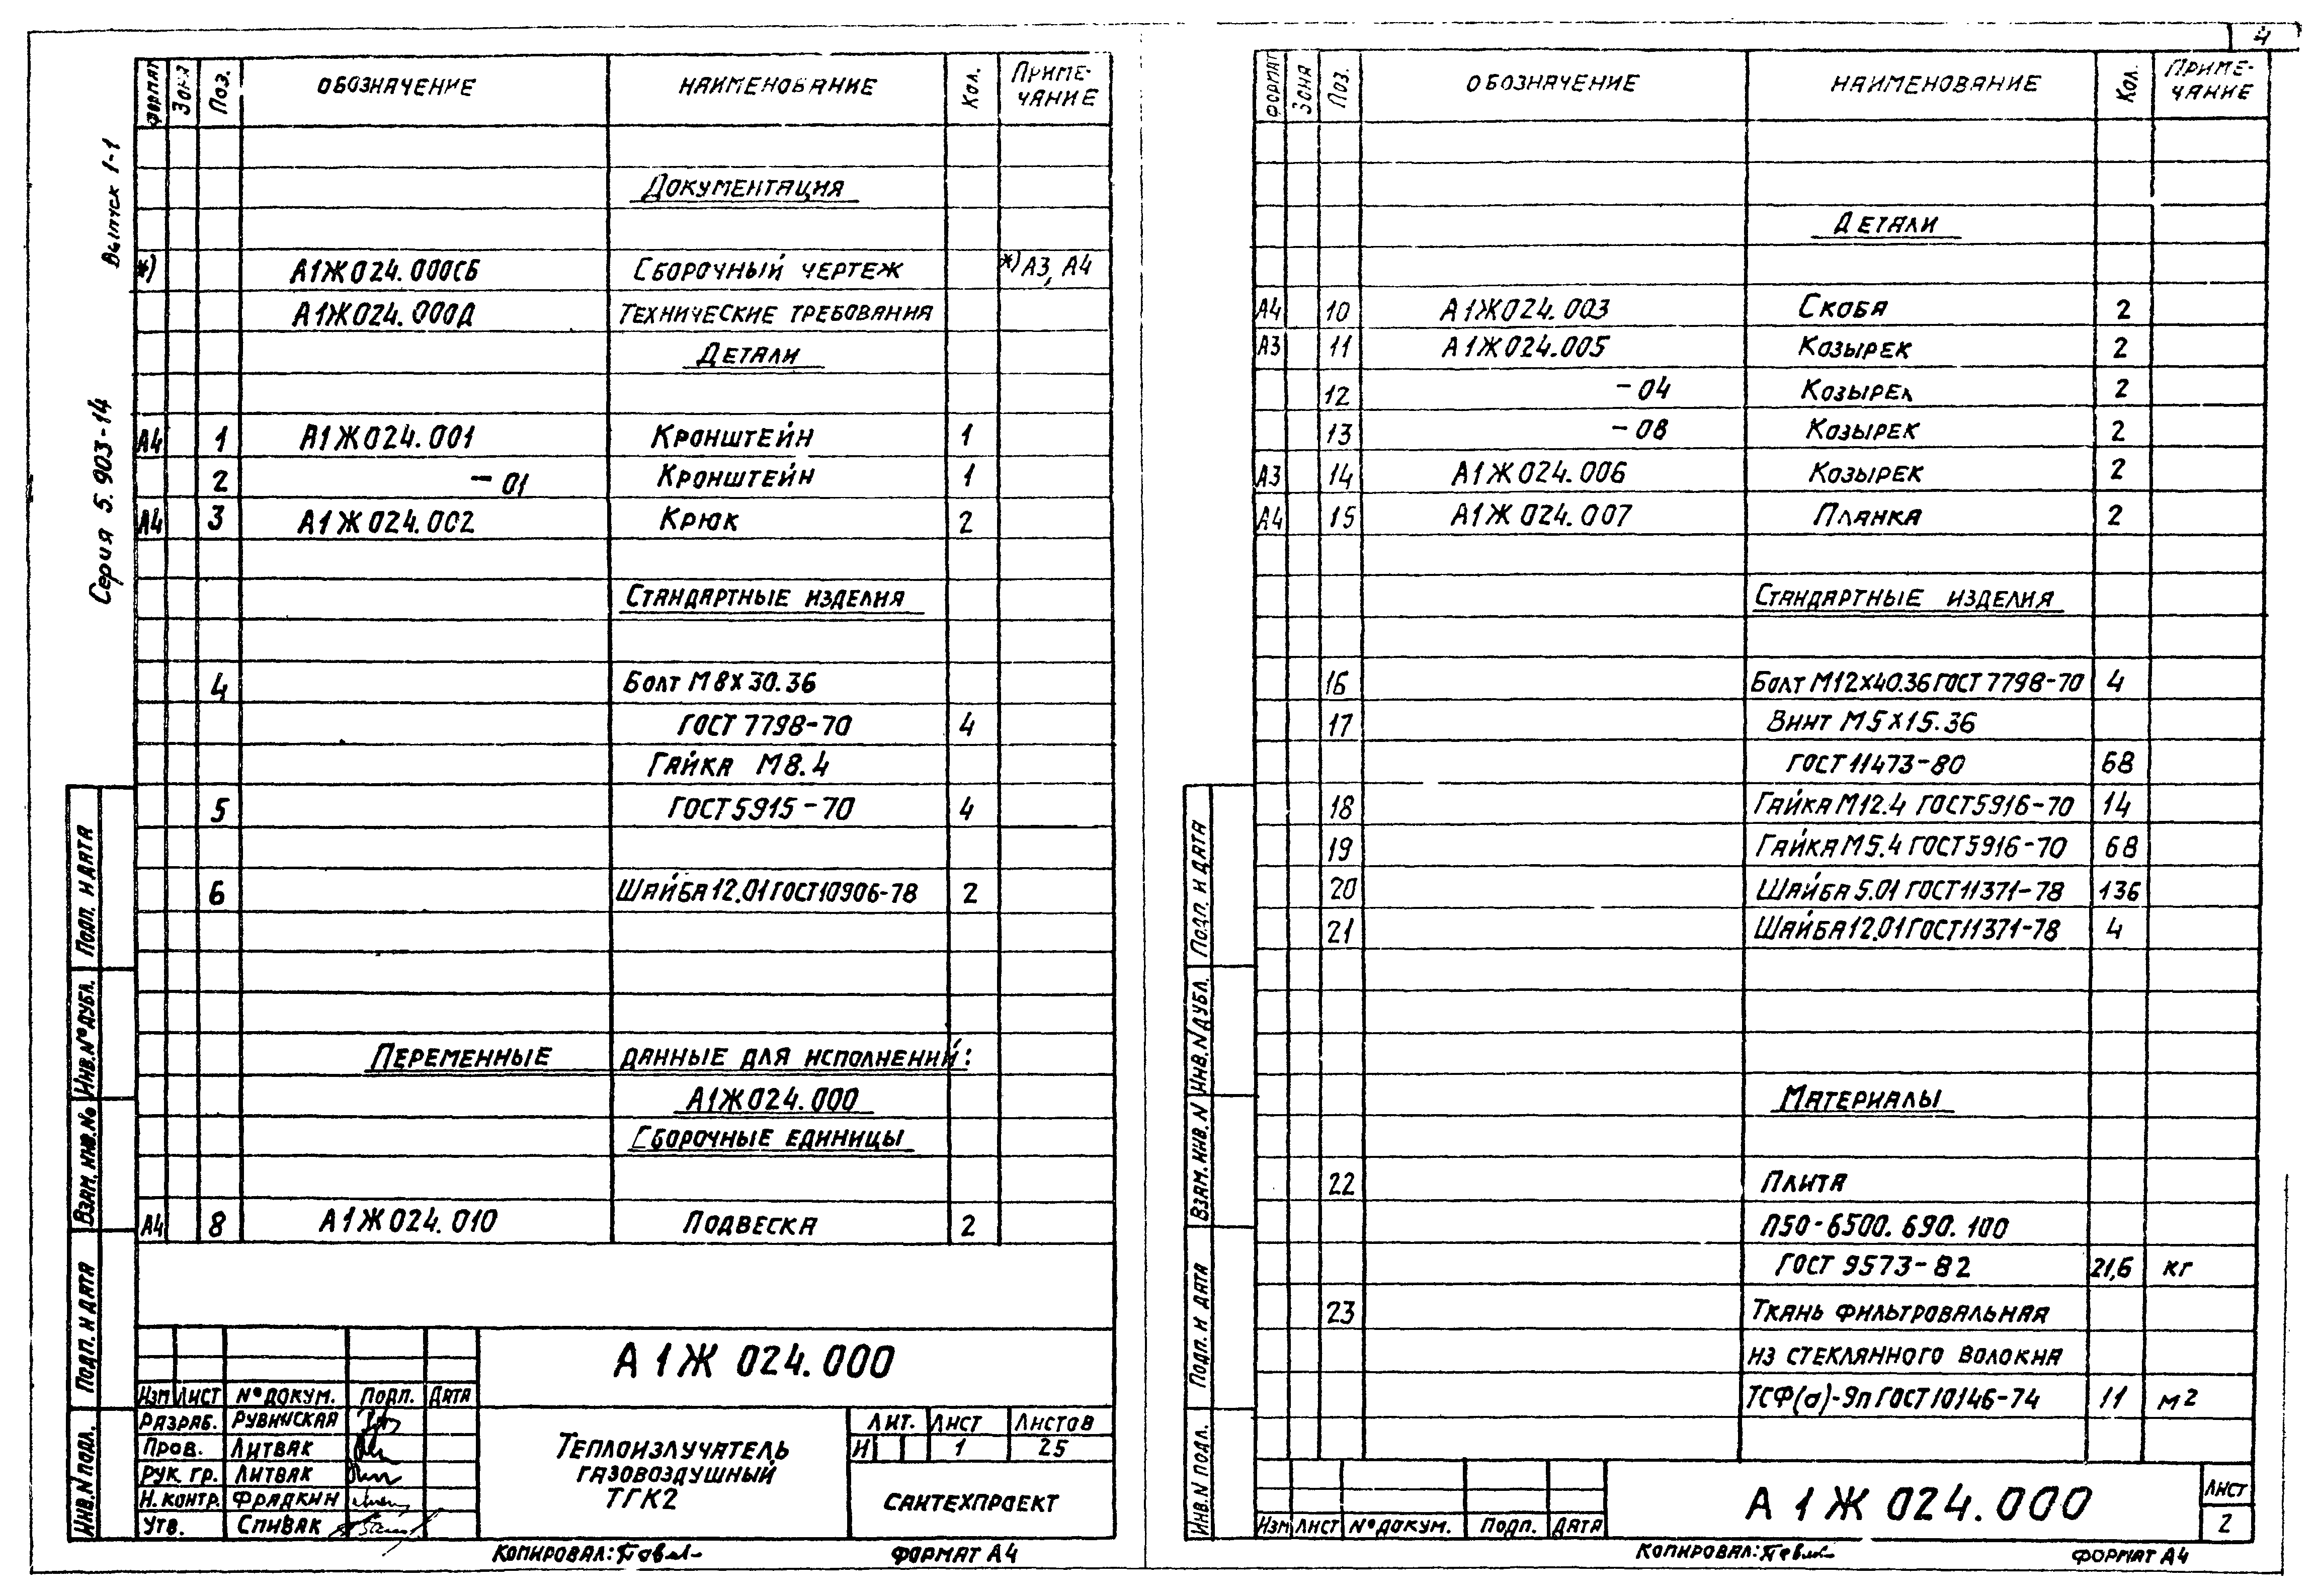 4
Выпуск 1-1
Серия 5.903-14
ФОРМАТ ЗОНА ПОЗ. ОБОЗНАЧЕНИЕ НАИМЕНОВАНИЕ КОЛ. ПРИМЕ-
ЧАНИЕ
ДОКУМЕНТАЦИЯ
*) А1Ж024.000СБ СБОРОЧНЫЙ ЧЕРТЕЖ *) А3, А4
А1Ж024.000Д ТЕХНИЧЕСКИЕ ТРЕБОВАНИЯ
ДЕТАЛИ
А4 1 А1Ж024.001 КРОНШТЕЙН 1
2 -01 КРОНШТЕЙН 1
А4 3 А1Ж024.002 КРЮК 2
СТАНДАРТНЫЕ ИЗДЕЛИЯ
4 БОЛТ М8Х30.36
ГОСТ 7798-70 4
ГАЙКА М8.4
5 ГОСТ 5915-70 4
6 ШАЙБА 12.01 ГОСТ 10906-78 2
ПЕРЕМЕННЫЕ ДАННЫЕ ДЛЯ ИСПОЛНЕНИЙ:
А1Ж024.000
СБОРОЧНЫЕ ЕДИНИЦЫ
А4 8 А1Ж024.010 ПОДВЕСКА 2
ПОДП. И ДАТА
ИНВ.№ДУБЛ.
ВЗАМ. ИНВ.№
ПОДП. И ДАТА
ИНВ.N ПОДЛ.
А1Ж 024.000
ИЗМ ЛИСТ №ДОКУМ. ПОДП. ДАТА
РАЗРАБ. РУВИНСКАЯ
ПРОВ. ЛИТВАК
РУК. ГР. ЛИТВАК
Н. КОНТР. ФРАДКИН
УТВ. СПИВАК
ТЕПЛОИЗЛУЧАТЕЛЬ
ГАЗОВОЗДУШНЫЙ
ТГК2
ЛИТ. ЛИСТ ЛИСТОВ
И 1 25
САНТЕХПРОЕКТ
КОПИРОВАЛ: ФОРМАТ А4
ФОРМАТ ЗОНА ПОЗ. ОБОЗНАЧЕНИЕ НАИМЕНОВАНИЕ КОЛ. ПРИМЕ-
ЧАНИЕ
ДЕТАЛИ
А4 10 А1Ж024.003 СКОБА 2
А3 11 А1Ж024.005 КОЗЫРЕК 2
12 -04 КОЗЫРЕК 2
13 -08 КОЗЫРЕК 2
А3 14 А1Ж024.006 КОЗЫРЕК 2
А4 15 А1Ж024.007 ПЛАНКА 2
СТАНДАРТНЫЕ ИЗДЕЛИЯ
16 БОЛТ М12Х40.36 ГОСТ 7798-70 4
17 ВИНТ М5Х15.36
ГОСТ 11473-80 68
18 ГАЙКА М12.4 ГОСТ 5916-70 14
19 ГАЙКА М5.4 ГОСТ 5916-70 68
20 ШАЙБА 5.01 ГОСТ 11371-78 136
21 ШАЙБА 12.01 ГОСТ 11371-78 4
МАТЕРИАЛЫ
22 ПЛИТА
П50-6500.690.100
ГОСТ 9573-82 21,6 КГ
23 ТКАНЬ ФИЛЬТРОВАЛЬНАЯ
ИЗ СТЕКЛЯННОГО ВОЛОКНА
ТСФ(а)-9п ГОСТ 10146-74 11 М2
ПОДП. И ДАТА
ИНВ.N ДУБЛ.
ВЗАМ. ИНВ. N
ПОДП. И ДАТА
ИНВ.N ПОДЛ.
ИЗМ ЛИСТ №ДОКУМ. ПОДП. ДАТА
А1Ж 024.000
ЛИСТ
2
КОПИРОВАЛ: ФОРМАТ А4